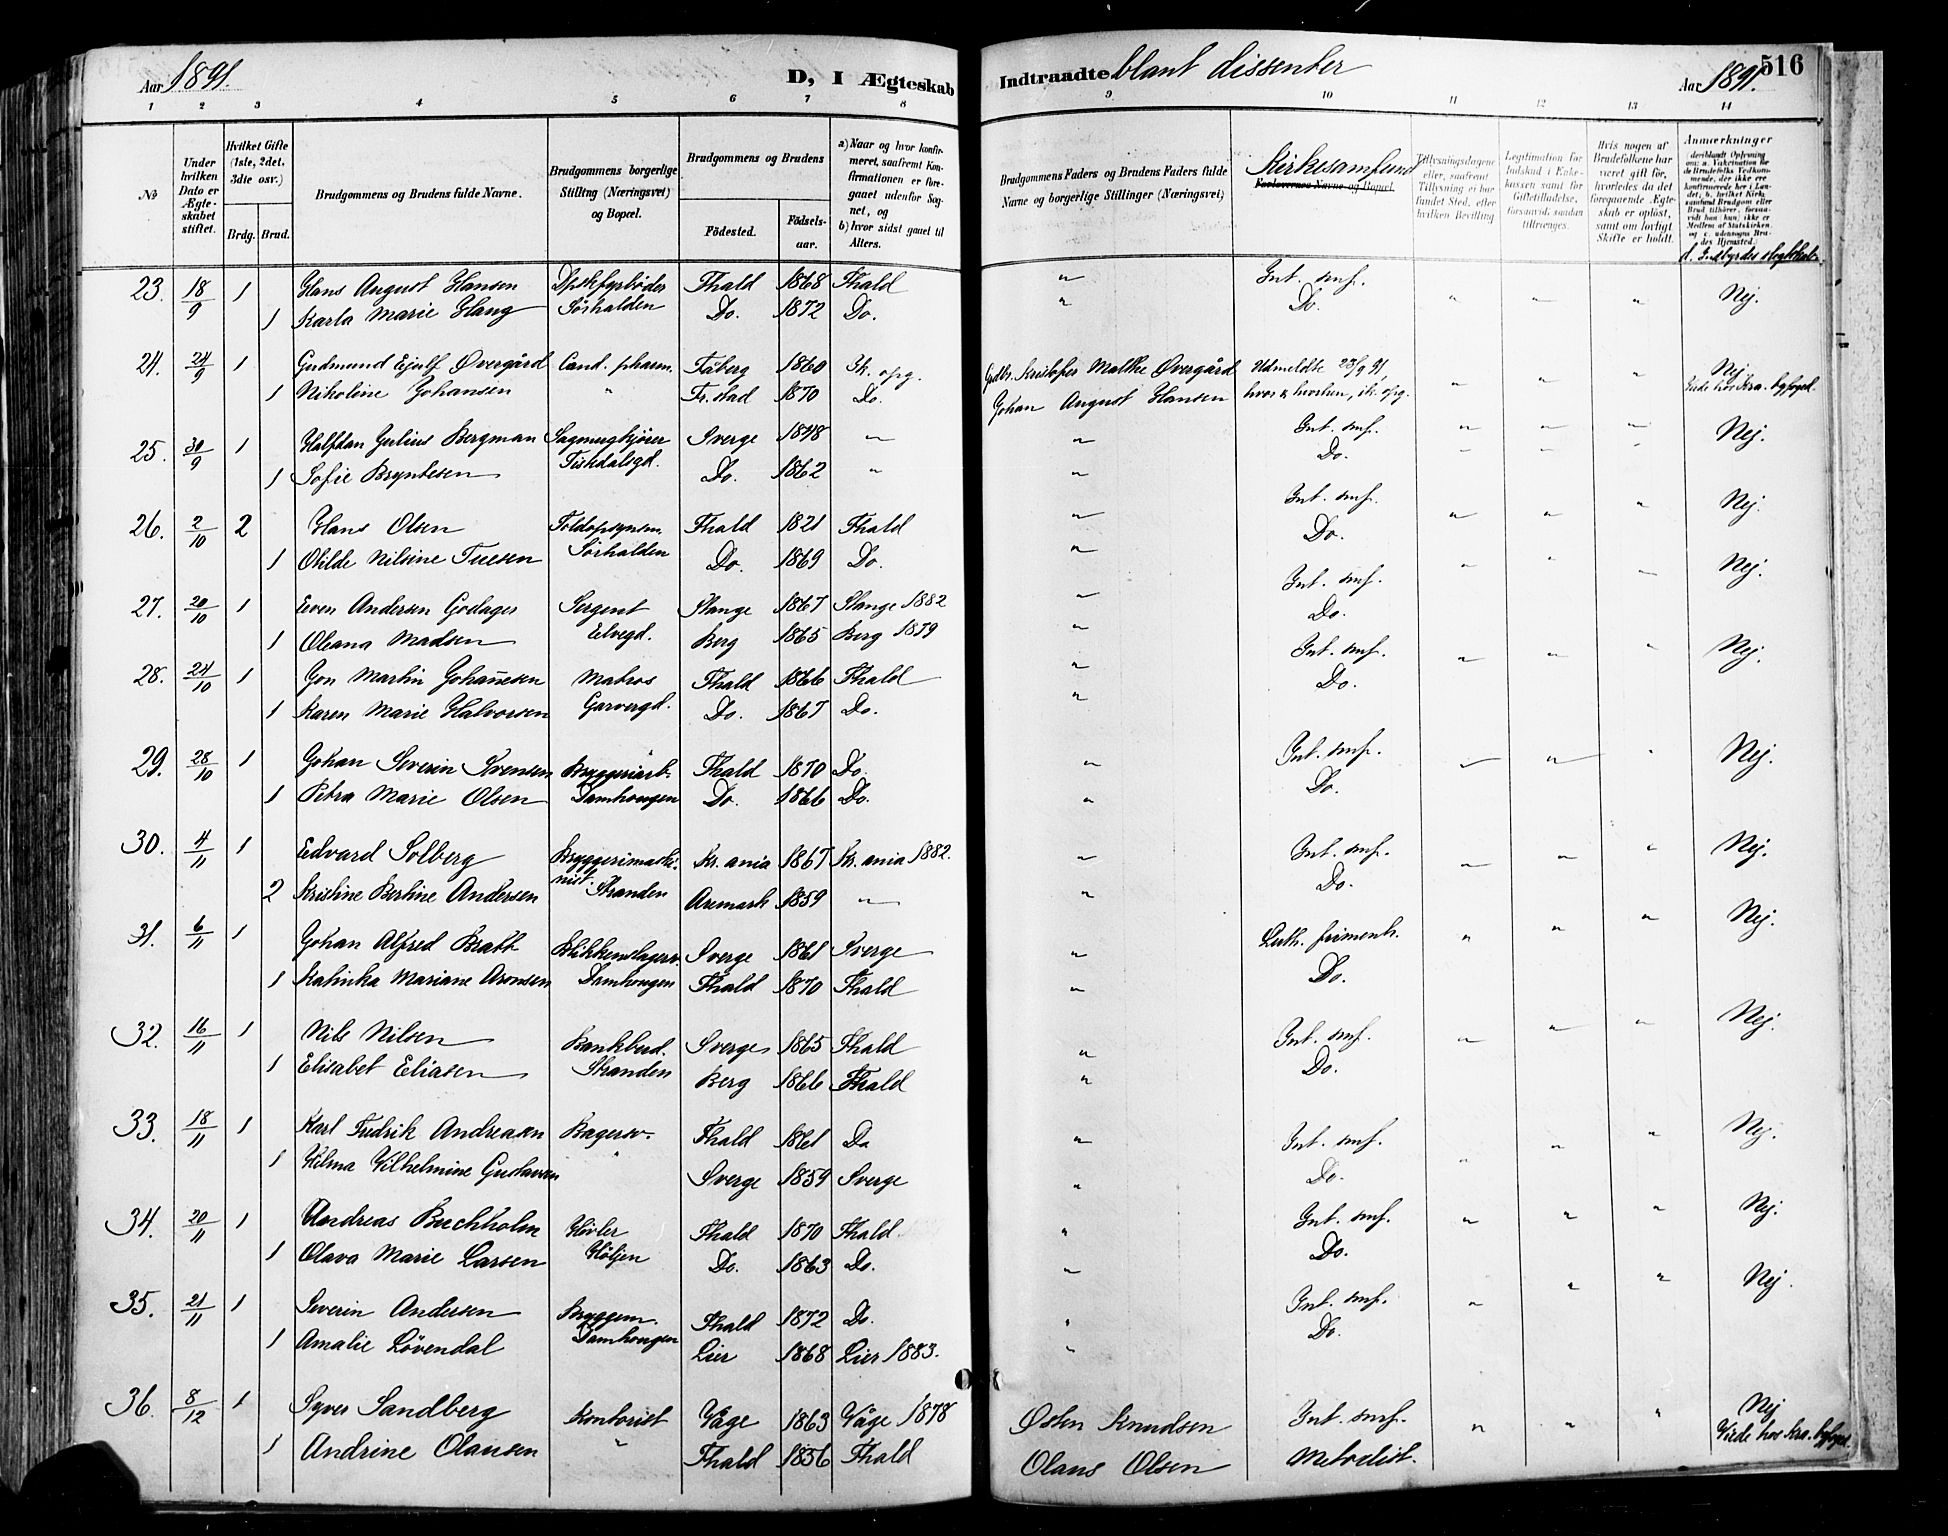 Aar 1891. D, I Ægteskab Indtraadte blant dissenter Aar 1891. 516
1 2 3 4 5 6 7 8 9 10 11 12 13 14
№ Under hvilken Dato er Ægteskabet stiftet. Hvilket Gifte (1ste, 2det, 3die osv.) Brdg. Brud. Brudgommens og Brudens fulde Navne. Brudgommens borgerlige Stilling (Næringsvei) og Bopæl. Brudgommens og Brudens Födested. Födselsaar. a) Naar og hvor konfirmeret, saafremt Konfirmationen er foregaaet udenfor Sognet, og b) hvor sidst gaaet til Alters.
Brudgommens Faders og Brudens Faders fulde Navne og borgerlige Stillinger (Næringsvei) Kirkesamfund Forlovernes Navne og Bopæl. Tillysningsdagene eller, saafremt Tillysning ei har fundet Sted, efter hvilken Bevilling Legitimation for Indskud i Enkekassen samt for Giftetilladelse, forsaavidt saadan tiltrænges. Hvis nogen af Brudefolkene har været gift før, hvorledes da det foregaaende Ægteskab er oplöst, samt om lovligt Skifte er holdt. Anmærkninger
23. 18/9 1 Hans August Hansen Dpskfyrbøder Fhald 1868 Fhald " Int. smf. Nej.
1 Karla Marie Haug Sørhalden Do. 1872 Do. " Do. " " "
24. 24/9 1 Gudmund Ejulf Øvergård Cand. pharm. Fåberg 1860 Ik. opg. Gdbr. Kristofer Malthe Øvergård Udmeldte 23/9 91, Nej.
1 Nikoline Johansen " Fr.stad 1870 Do. Johan August Hansen hvor & hvorhen, ik. opg. " " " Viede hos Kra. byfoged.
25. 30/9 1 Halfdan Julius Bergman Sagmugkjører Sverge 1848 " " Int. smf. " " " Nej.
1 Sofie Bryntesen Tistdalsgd. Do. 1862 " " Do. " " "
26. 2/10 2 Hans Olsen Toldopsynsm. Fhald 1821 Fhald " Int. smf. " " " Nej.
1 Otilde Nilsine Tuesen Sørhalden Do. 1869 Do. " Do.
27. 20/10 1 Even Andersen Godager Sergent Stange 1867 Stange 1882 " Int. smf. " " " Nej.
1 Oleana Madsen Elvegd. Berg 1865 Berg 1879 " Do.
28. 24/10 1 Jon Martin Johannesen Matros Fhald 1866 Fhald " Int. smf. " " " Nej.
1 Karen Marie Halvorsen Garvergd. Do. 1867 Do. " Do.
29. 28/10 1 Johan Severin Svensen Bryggeriarb. Fhald 1870 Do. " Int. smf. " " " Nej.
1 Petra Marie Olsen Damhougen Do. 1866 Do. " Do.
30. 4/11 1 Edvard Solberg Bryggerimaskinist. Kr.ania 1867 Kr.ania 1882. " Int. smf. " " " Nej.
2 Kristine Bertine Andersen Stranden Aremark 1859 " " Do.
31. 6/11 1 Johan Alfred Bratt Blikkenslagersv. Sverge 1861 Sverge " Luth. frimenh. " " " Nej.
1 Katinka Mariane Aronsen Damhougen Fhald 1870 Fhald " Do.
32. 16/11 1 Nils Nilsen Bankbud. Sverge 1865 Fhald " Int. smf. " " " Nej.
1 Elisabet Eliasen Stranden Berg 1866 Fhald " Do.
33. 18/11 1 Karl Fredrik Andreasen Bagersv. Fhald 1861 Do " Int. smf. " " " Nej.
1 Hilma Vilhelmine Gustavsen " Sverge 1859 Sverge " Do.
34. 20/11 1 Andreas Buchholm Høvler Fhald 1870 Fhald. " Int. smf. " " " Nej.
1 Olava Marie Larsen Høljen Do. 1863 Do. " Do.
35. 21/11 1 Severin Andersen Bryggem. Fhald 1872 Do. " Int. smf. " " " Nej.
1 Amalie Lövendal Damhougen Lier 1868 Lier 1883. " Do.
36. 8/12 1 Syver Sandberg Kontorist Våge 1863 Våge 1878 Østen Knudsen Int. smf. " " " Nej
1 Andrine Olausen " Fhald 1856 Fhald Olaus Olsen Metodist. Viede hos Kra. byfoged.